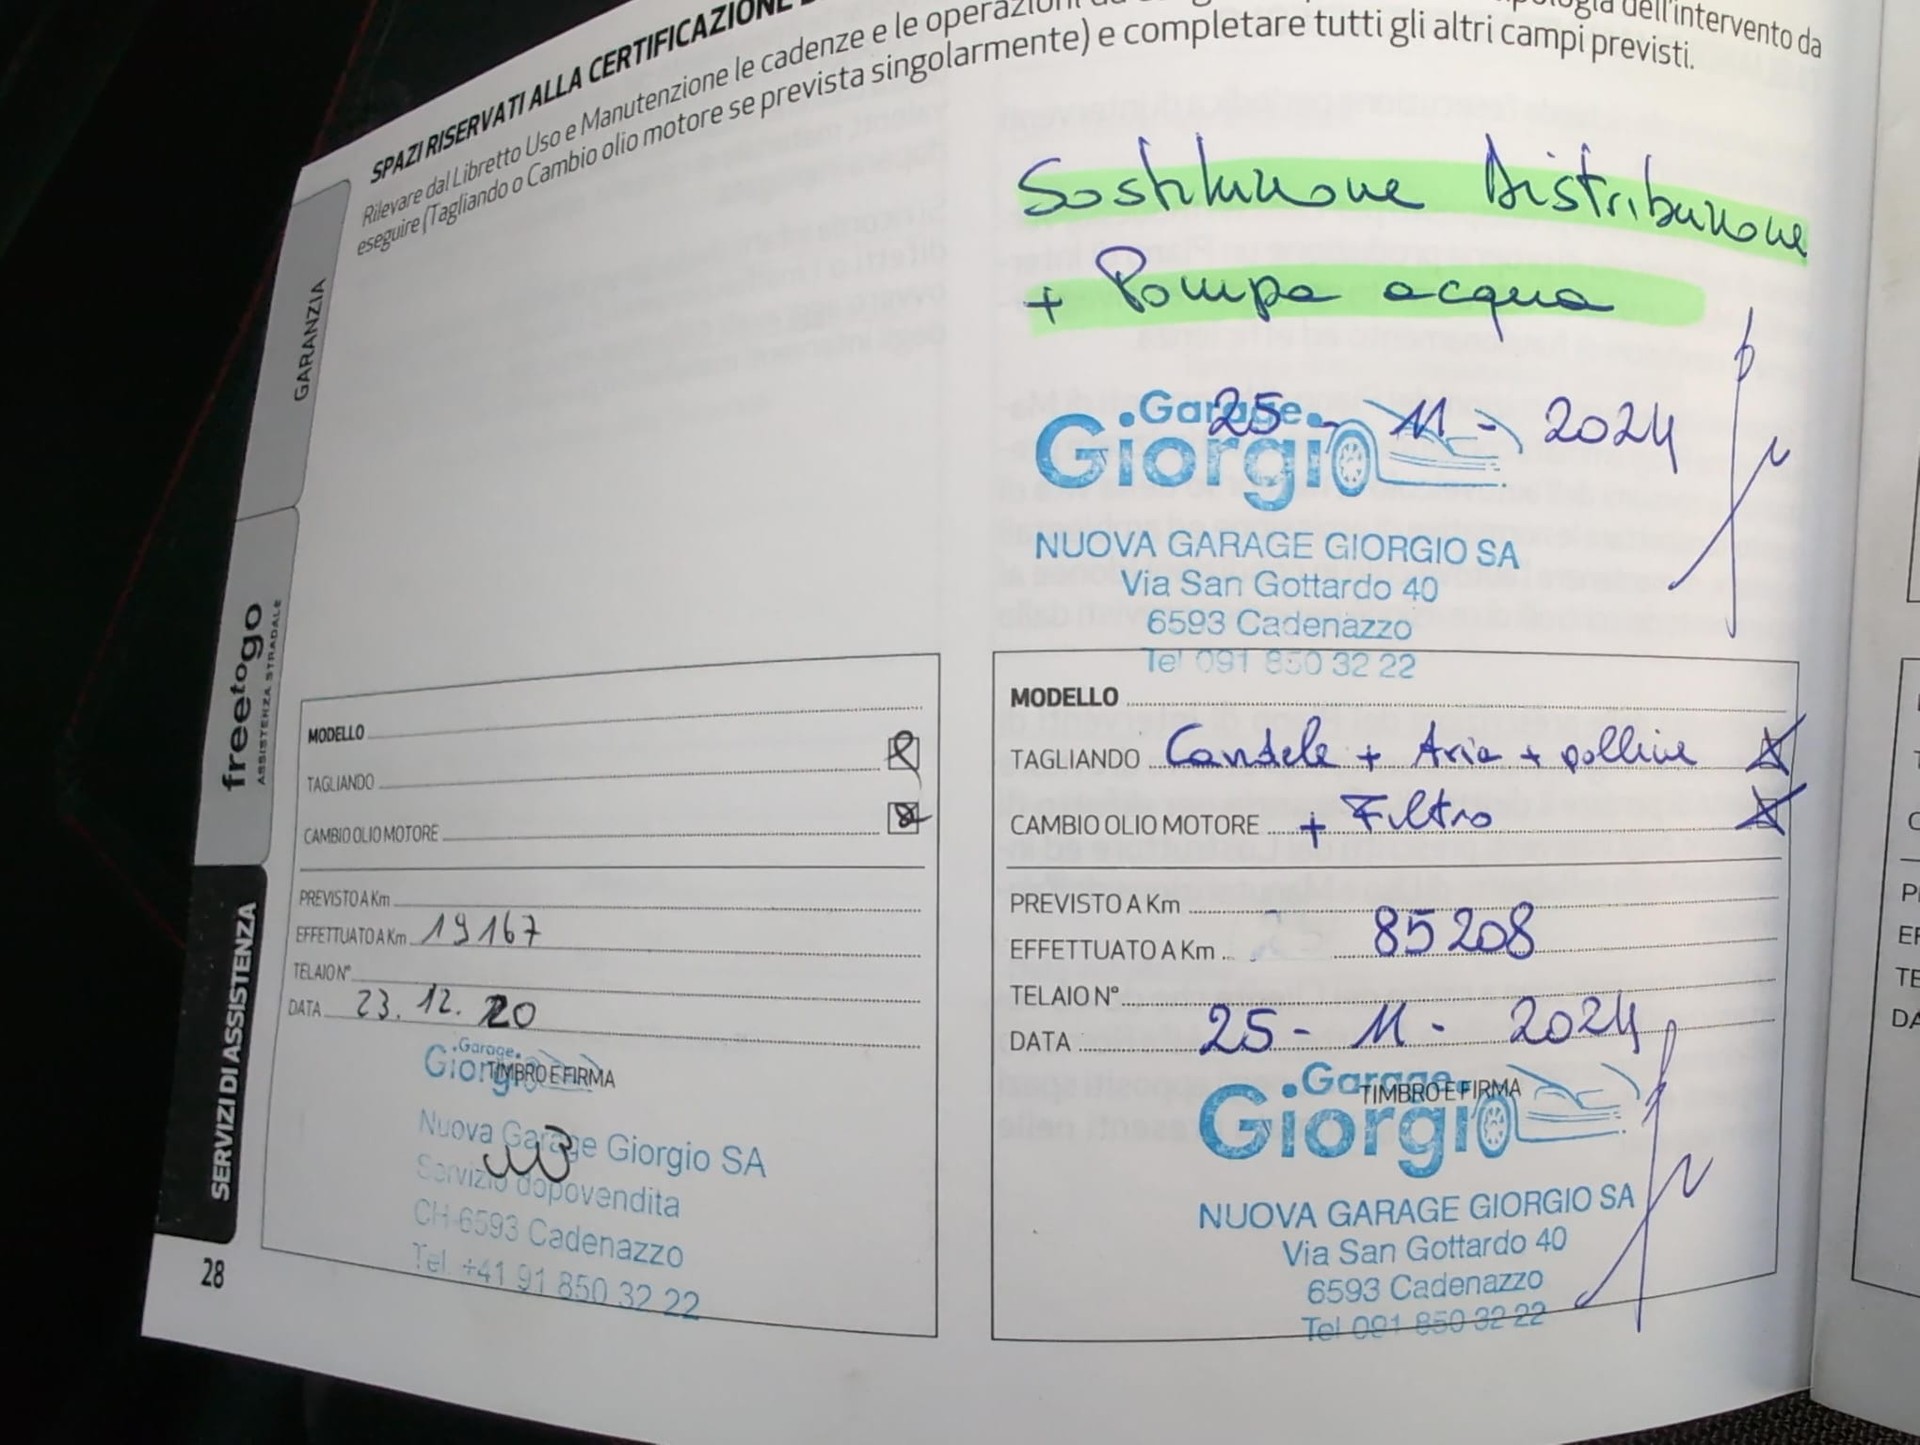 SPAZI RISERVATI ALLA CERTIFICAZIONE
Rilevare dal Libretto Uso e Manutenzione le cadenze e le operazioni dell'intervento da
eseguire (Tagliando o Cambio olio motore se prevista singolarmente) e completare tutti gli altri campi previsti.
GARANZIA
freetogo
ASSISTENZA STRADALE
SERVIZI DI ASSISTENZA
28
MODELLO
TAGLIANDO
CAMBIO OLIO MOTORE
PREVISTO A Km
EFFETTUATO A Km 19167
TELAIO N°
DATA 23.12.20
TIMBRO E FIRMA
Garage
Giorgio
Nuova Garage Giorgio SA
Servizio dopovendita
CH-6593 Cadenazzo
Tel. +41 91 850 32 22
Sostituzione Distribuzione
+ Pompa acqua
25-11-2024
Garage
Giorgio
NUOVA GARAGE GIORGIO SA
Via San Gottardo 40
6593 Cadenazzo
Tel 091 850 32 22
MODELLO
TAGLIANDO Candele + Aria + polline
CAMBIO OLIO MOTORE + Filtro
PREVISTO A Km
EFFETTUATO A Km 85208
TELAIO N°
DATA 25-11-2024
TIMBRO E FIRMA
Garage
Giorgio
NUOVA GARAGE GIORGIO SA
Via San Gottardo 40
6593 Cadenazzo
Tel 091 850 32 22